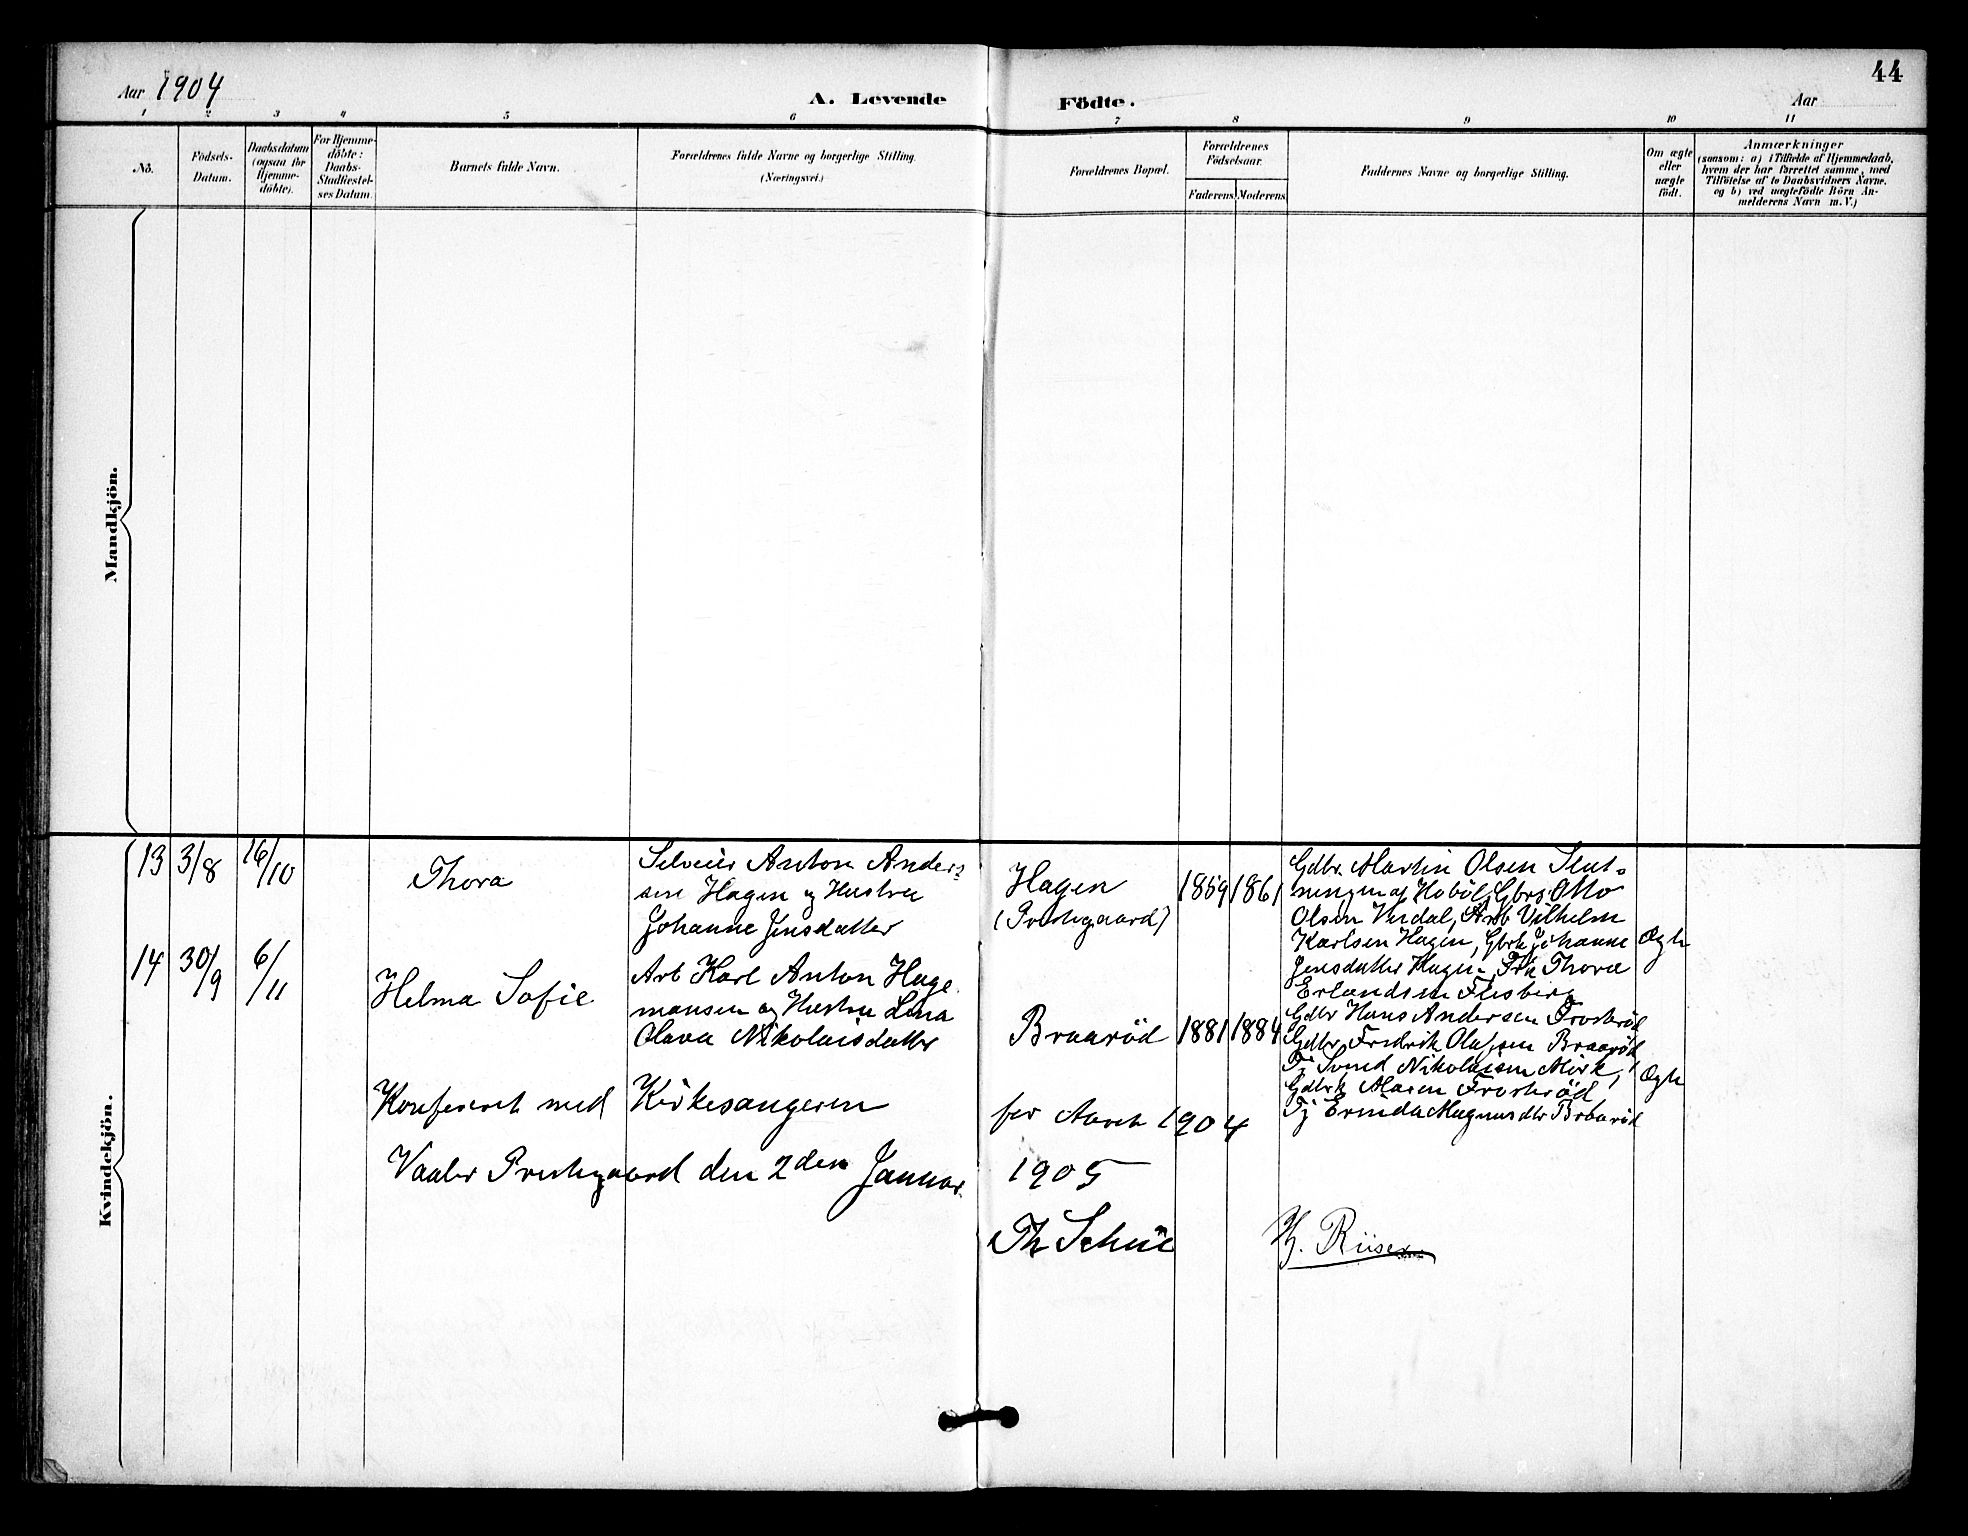 Aar 1904
A. Levende Födte.
Aar
44
1 2 3 4 5 6 7 8 9 10 11
No.
Födsels-
Datum.
Daabsdatum
(ogsaa for
Hjemme-
döbte).
For Hjemme-
döbte:
Daabs-
Stadfæstel-
ses Datum.
Barnets fulde Navn.
Forældrenes fulde Navne og borgerlige Stilling.
(Næringsvei.)
Forældrenes Bopæl.
Forældrenes
Födselsaar.
Faderens Moderens
Faddernes Navne og borgerlige Stilling.
Om ægte
eller
uægte
födt.
Anmærkninger
(saasom: a) i Tilfælde af Hjemmedaab,
hvem der har forrettet samme, med
Tilföielse af to Daabsvidners Navne,
og b) ved uægtefödte Börn An-
melderens Navn m. V.)
Mandkjön.
Kvindekjön.
13 3/8 16/10
Thora
Selveier Anton Ander-
sen Hagen og Hustru
Johanne Jensdatter
Hagen
(Prestegaard)
1859 1861
Gdbr. Martin Olsen Slut-
ningen af Hobøl, Gbrs. Otto
Olsen Verdal, Arb Vilhelm
Karlsen Hagen, Gbrk Johanne
Jensdatter Hagen, Frk Thora
Erlandsen Flesberg
Ægte
14 30/9 6/11
Helma Sofie
Arb Karl Anton Hage
mansen og Hustru Lina
Olava Nikolaisdatter
Braarød
1881 1884
Gdbr Hans Andersen Froshrød
Gdbr Fredrik Olafsen Braarød
Tj Svend Nikolaisen Mörk,
Gdbrk Maren Froshrød
Tj Erinda Magnusdtr Braarød
Ægte
Konfereret med Kirkesangeren for Aaret 1904
Vaaler Prestegaard den 2den Januar 1905
Th Schüe
H. Riiser